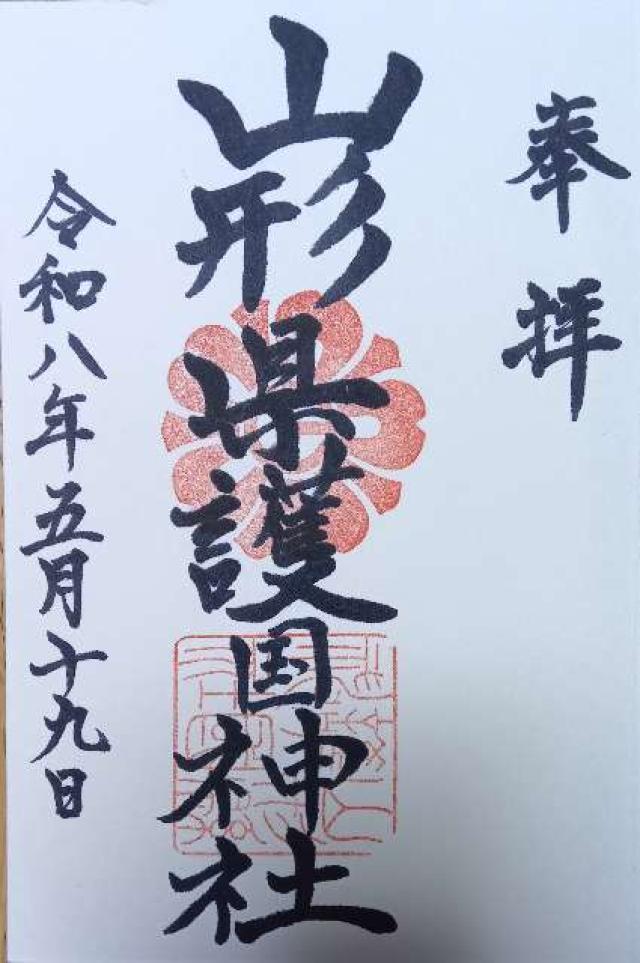 奉拝
山形県護国神社
令和八年五月十九日